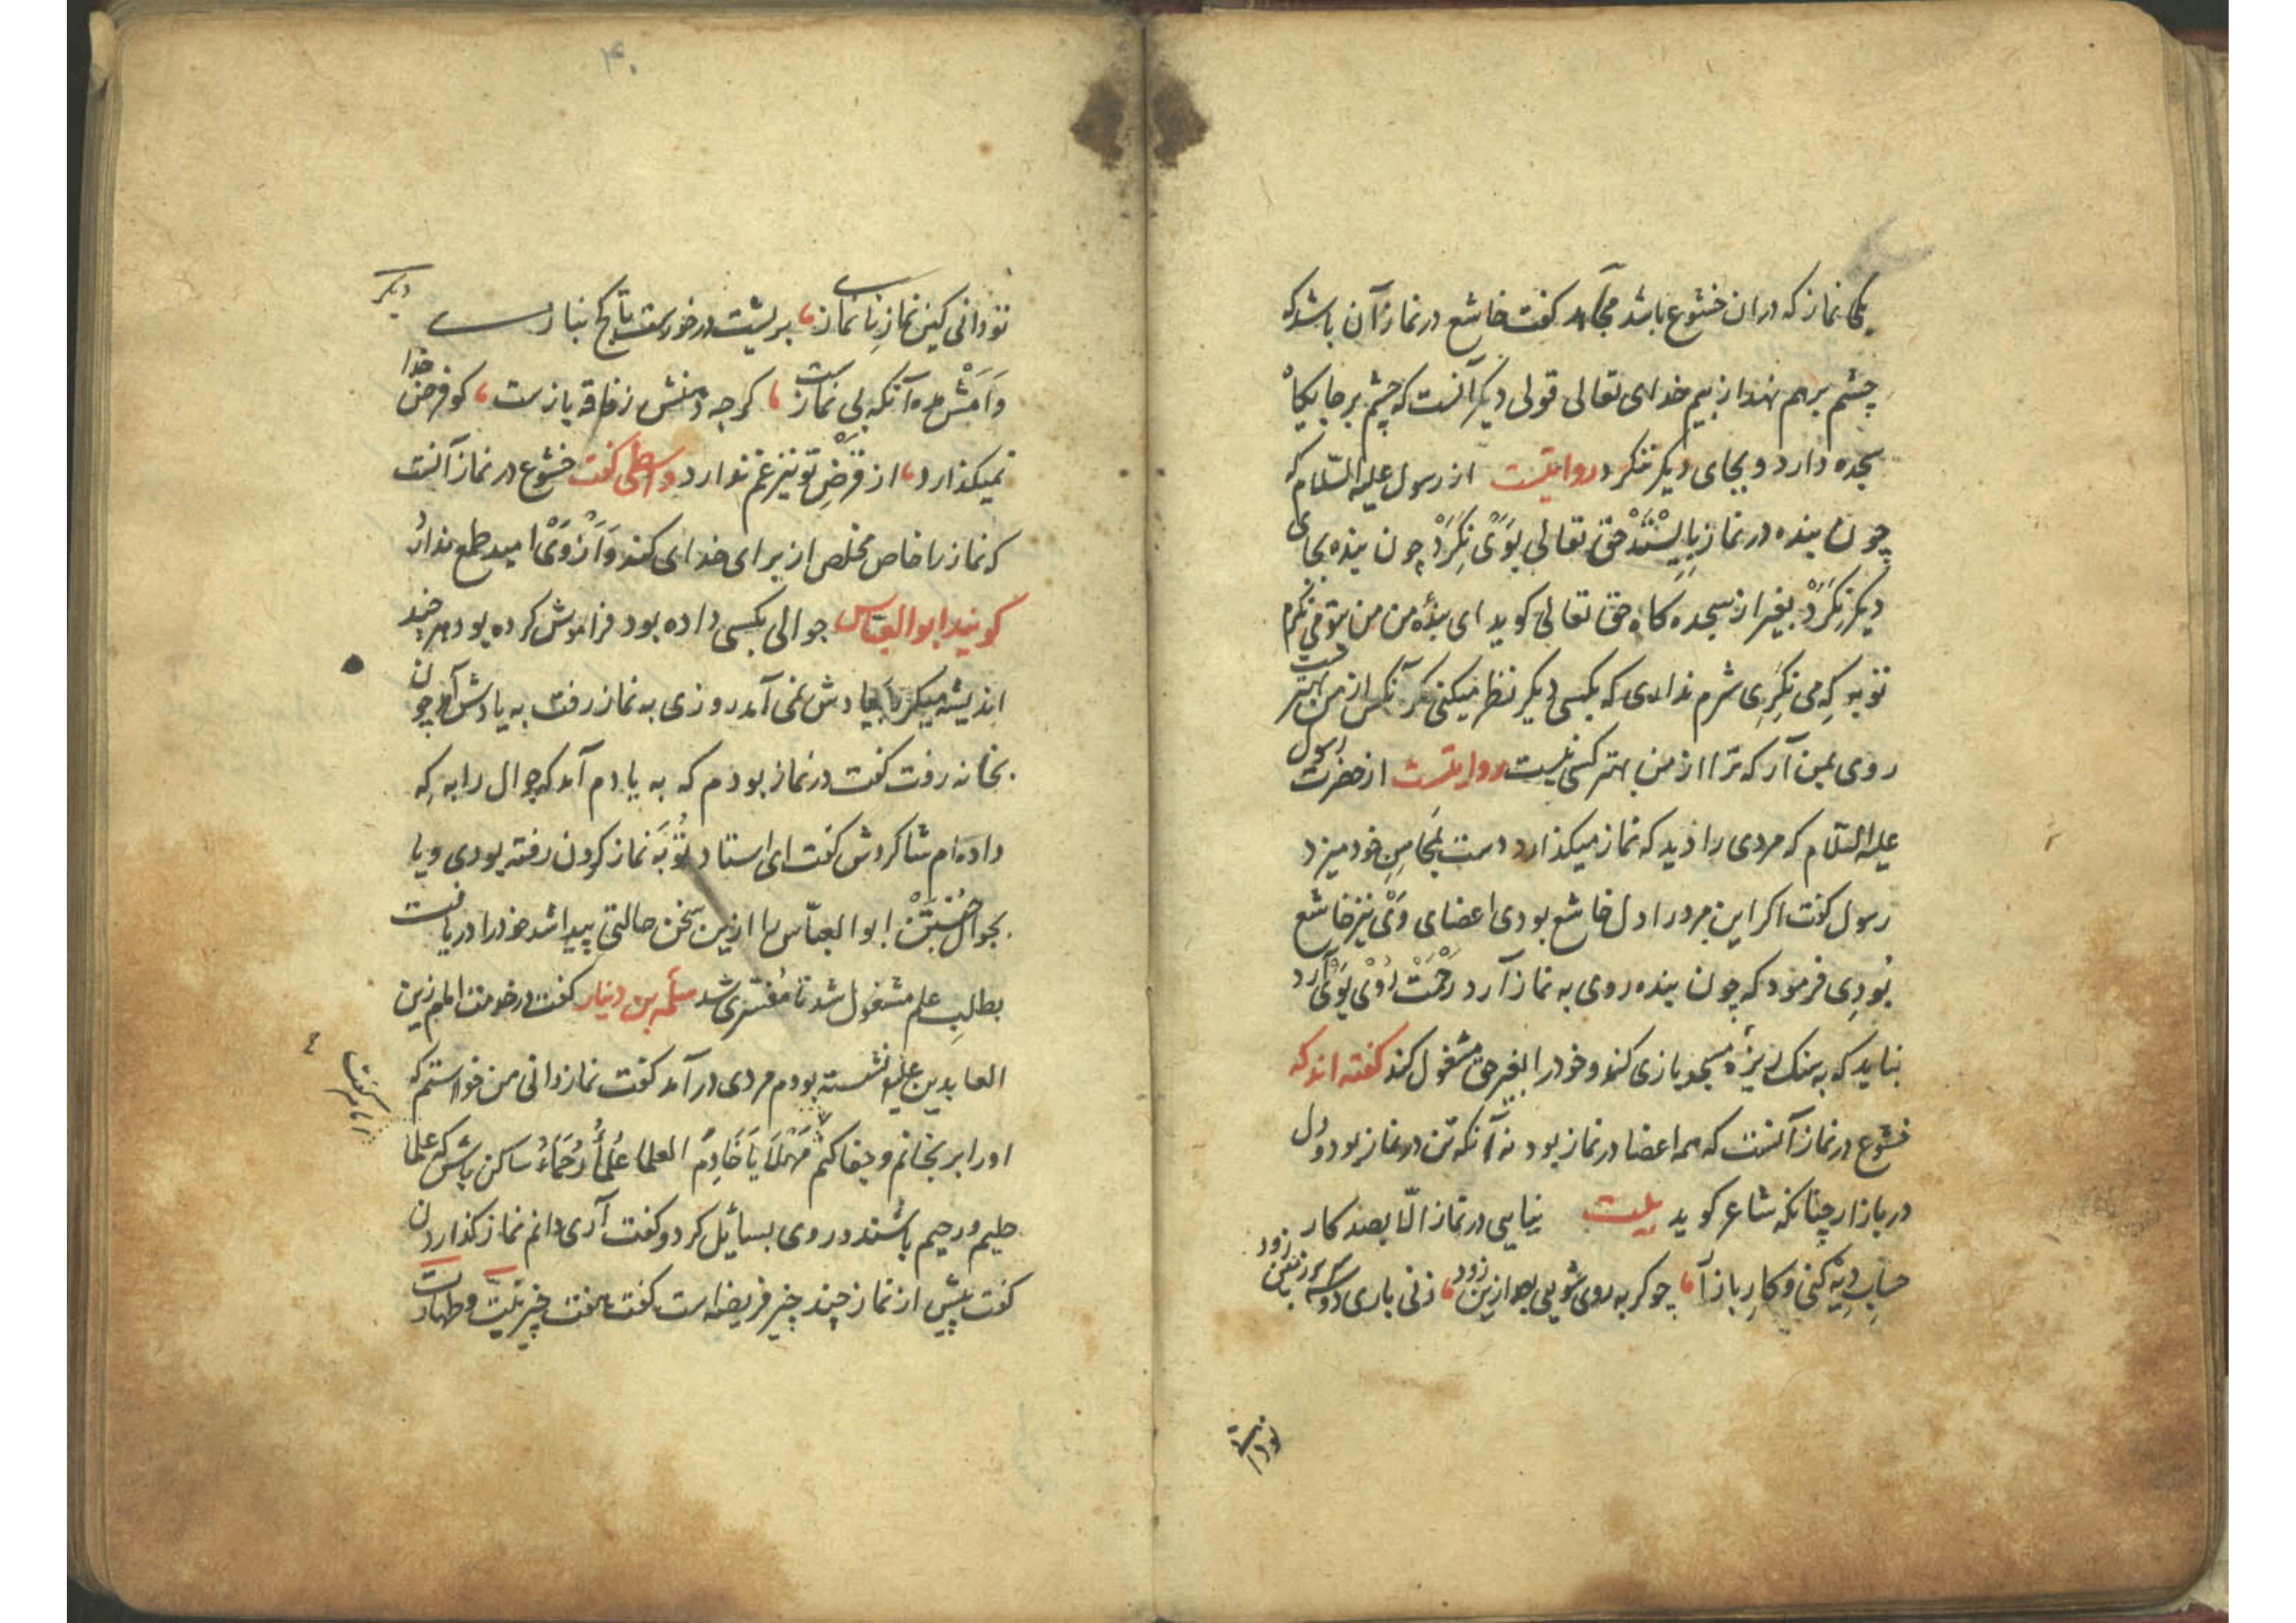 یکی نماز که دران خشوع باشد مجاهد کفت خاشع در نماز آن باشد که
چشم برهم نهد از بیم خدای تعالی قولی دیکر آنست که چشم بر جایکاه
سجده دارد و بجای دیکر ننکرد روایتست از رسول علیه السّلام که
چون بنده در نماز بایستد حق تعالی بوی نکرد چون بنده بجای
دیکر نکرد بغیر از سجده کاه حق تعالی کوید ای بندهٔ من من بتو می نکرم
تو به که می نکری شرم نداری که بکسی دیکر نظر میکنی مکر آنکس از من بهتر است
روی بمن آر که ترا از من بهتر کسی نیست روایتست از حضرت رسول
علیه السّلام که مردی را دید که نماز میکذارد دست بمحاسن خود میزد
رسول کفت اکر این مرد را دل خاشع بودی اعضای وی نیز خاشع
بودی فرمود که چون بنده روی به نماز آرد رحمت روی بوی آرد
نباید که به سنک ریزهٔ مسجد بازی کند و خود را بغیر حق مشغول کند کفته اند که
خشوع در نماز آنست که همه اعضا در نماز بود نه آنکه تن در نماز بود و دل
در بازار چنانکه شاعر کوید بیت نیایی در نماز الّا بصد کار
حساب دیه کنی و کار بازار چو کر به روی شویی بعد ازین زود زنی باری دو سه بر زمین زود
تو دانی
۴۰
تو دانی کین نماز نانمازی بریشت در خورست تا کج نبازی
دیکر
وامش مده آنکه بی نماز است کرچه دهنش ز فاقه بازست کو فرض خدا
نمیکذارد از قرض تو نیز غم ندارد واسطی کفت خشوع در نماز آنست
که نماز را خاص مخلص از برای خدای کند و از وی امید طمع ندارد
کویند ابوالعبّاس جوالی بکسی داده بود فراموش کرده بود هر چند
اندیشه میکرد با یادش نمی آمد روزی به نماز رفت به یادش آمد چون
بخانه رفت کفت در نماز بودم که به یادم آمد که جوال را به که
داده ام شاکردش کفت ای استاد تو به نماز کردن رفته بودی و یا
بجوال جستن ابوالعبّاس را ازین سخن حالتی پیدا شد خود را دریافت
بطلب علم مشغول شد تا مفسّری شد سلمه بن دینار کفت در خدمت امام زین
العابدین علیه نشسته بودم مردی در آمد کفت نماز دانی من خواستم که
او را برنجانم و جفا کنم مهلا یا خادم العلما علماء رحماء ساکن باش که علما
حلیم و رحیم باشند و روی بسائل کرد و کفت آری دانم نماز کذاردن
کفت پیش از نماز چند چیز فریضه است کفت هفت چیز نیّت و طهارت